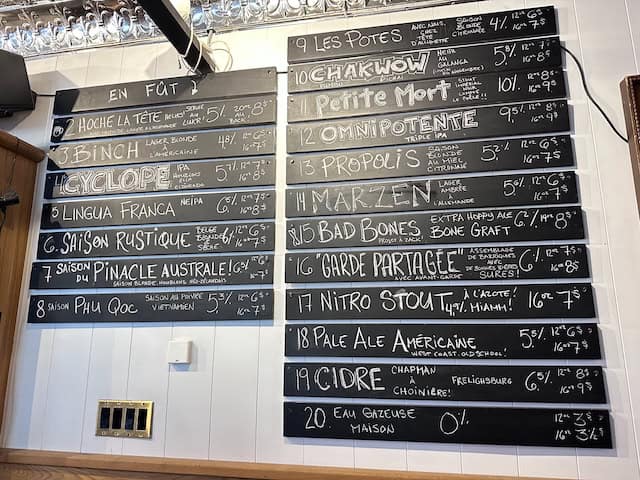 EN FÛT
2 HOCHE LA TÊTE 5% 20oz 8$
3. BINCH LAGER BLONDE À L'AMÉRICAINE 4.8% 12oz 6$ 16oz 7$
4 CYCLOPE IPA 5.7% 12oz 6$ 16oz 8$
5 LINGUA FRANCA NEIPA 6.5% 12oz 7$ 16oz 8$
6. SAISON RUSTIQUE BELGE BLONDE SÈCHE 6% 12oz 6$ 16oz 7$
7 SAISON DU PINACLE AUSTRALE! 6.5% 12oz 6$ 16oz 7$
SAISON BLONDE, HOUBLONS NÉO-ZÉLANDAIS
8 SAISON PHU QOC SAISON AU POIVRE VIETNAMIEN 5.3% 12oz 6$ 16oz 7$
9 LES POTES AVEC NAIS, CHEZ TÊTE D'ALLUMETTE SAISON BLONDE CITRONNÉE 4% 12oz 6$ 16oz 7$
10 CHAKWOW NEIPA AU GALANGA 5.8% 12oz 7$ 16oz 8$
11 PETITE MORT STOUT IMPÉRIAL 10% 12oz 8$ 16oz 9$
12 OMNIPOTENTE TRIPLE IPA 9.5% 12oz 8$ 16oz 9$
13 PROPOLIS SAISON BLONDE AU MIEL CITRONNÉE 5.2% 12oz 6$ 16oz 7$
14 MARZEN LAGER AMBRÉE À L'ALLEMANDE 5.6% 12oz 6$ 16oz 7$
15 BAD BONES EXTRA HOPPY ALE BONE GRAFT 6.2% 14oz 8$
PROJET À ZACK!
16 "GARDE PARTAGÉE" ASSEMBLAGE DE BARRIQUES AVEC DE BONNES BIÈRES SURES! 6% 12oz 7$ 16oz 8$
AVEC AVANT-GARDE
17 NITRO STOUT À L'AZOTE! 4.9% MIAMM! 16oz 7$
18 PALE ALE AMÉRICAINE 5.5% 12oz 6$ 16oz 7$
WEST COAST. OLD SCHOOL!
19 CIDRE CHAPMAN À CHOINIÈRE! FRELIGHSBURG 6.5% 12oz 8$ 16oz 9$
20. EAU GAZEUSE MAISON 0% 12oz 3$ 16oz 3½$